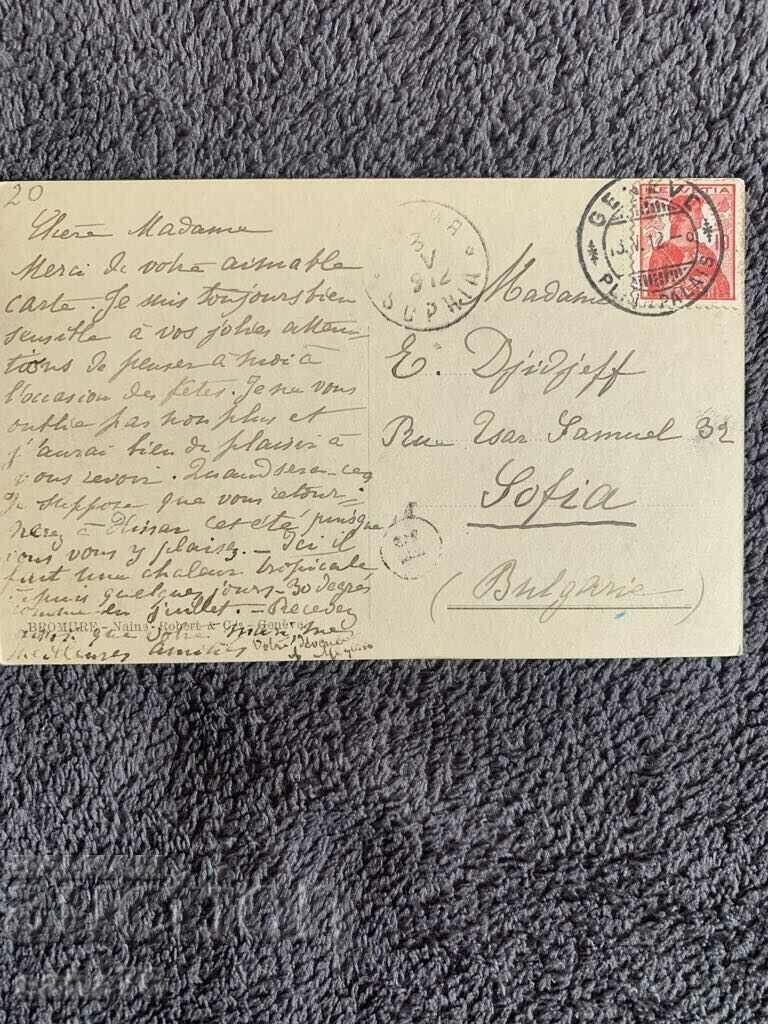 20
Chère Madame
Merci de votre aimable
carte. Je suis toujours bien
sensible à vos jolies atten-
tions de penser à moi à
l'occasion des fêtes. Je ne vous
oublie pas non plus et
j'aurai bien du plaisir à
vous revoir. Quand sera-ce
Je suppose que vous retour-
nerez à cet été puisque
vous vous y plaisez. - Ici il
fait une chaleur tropicale
depuis quelques jours - 30 degrés
comme en juillet. - Recevez
que votre mari mes
meilleures amitiés
votre dévouée
BROMURE - Nains Robert & Cie - Genève
3
V
912
SOPHIA
HELVETIA
10
GENÈVE
13.V.12-8
PL. PALAIS
Madame
E. Djidjeff
Rue Tsar Samuel 32
Sofia
(Bulgarie)